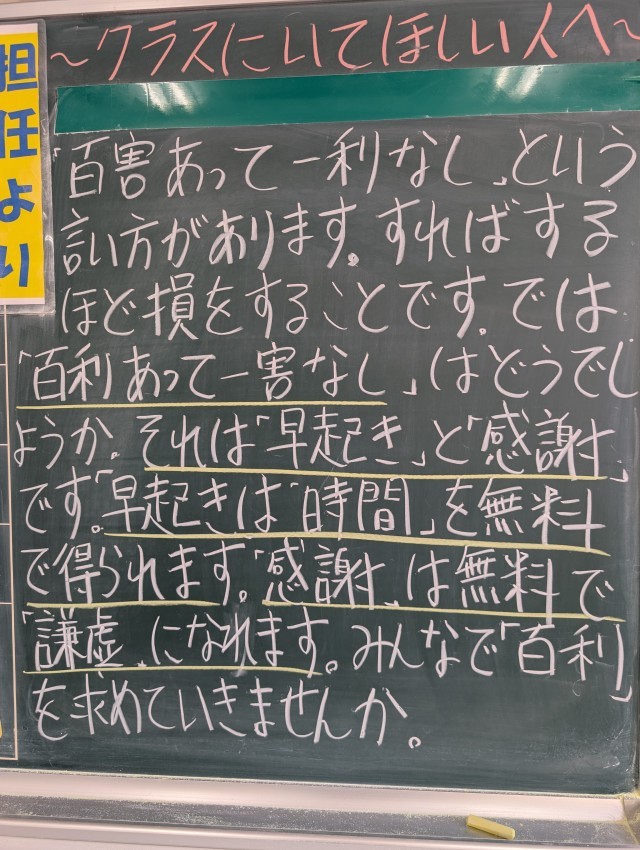 ~クラスにいてほしい人へ~
担任より
「百害あって一利なし」という
言い方があります。すればする
ほど損をすることです。では
「百利あって一害なし」はどうでし
ょうか。それは「早起き」と「感謝」
です。早起きは「時間」を無料
で得られます。「感謝」は無料で
「謙虚」になれます。みんなで「百利」
を求めていきませんか。